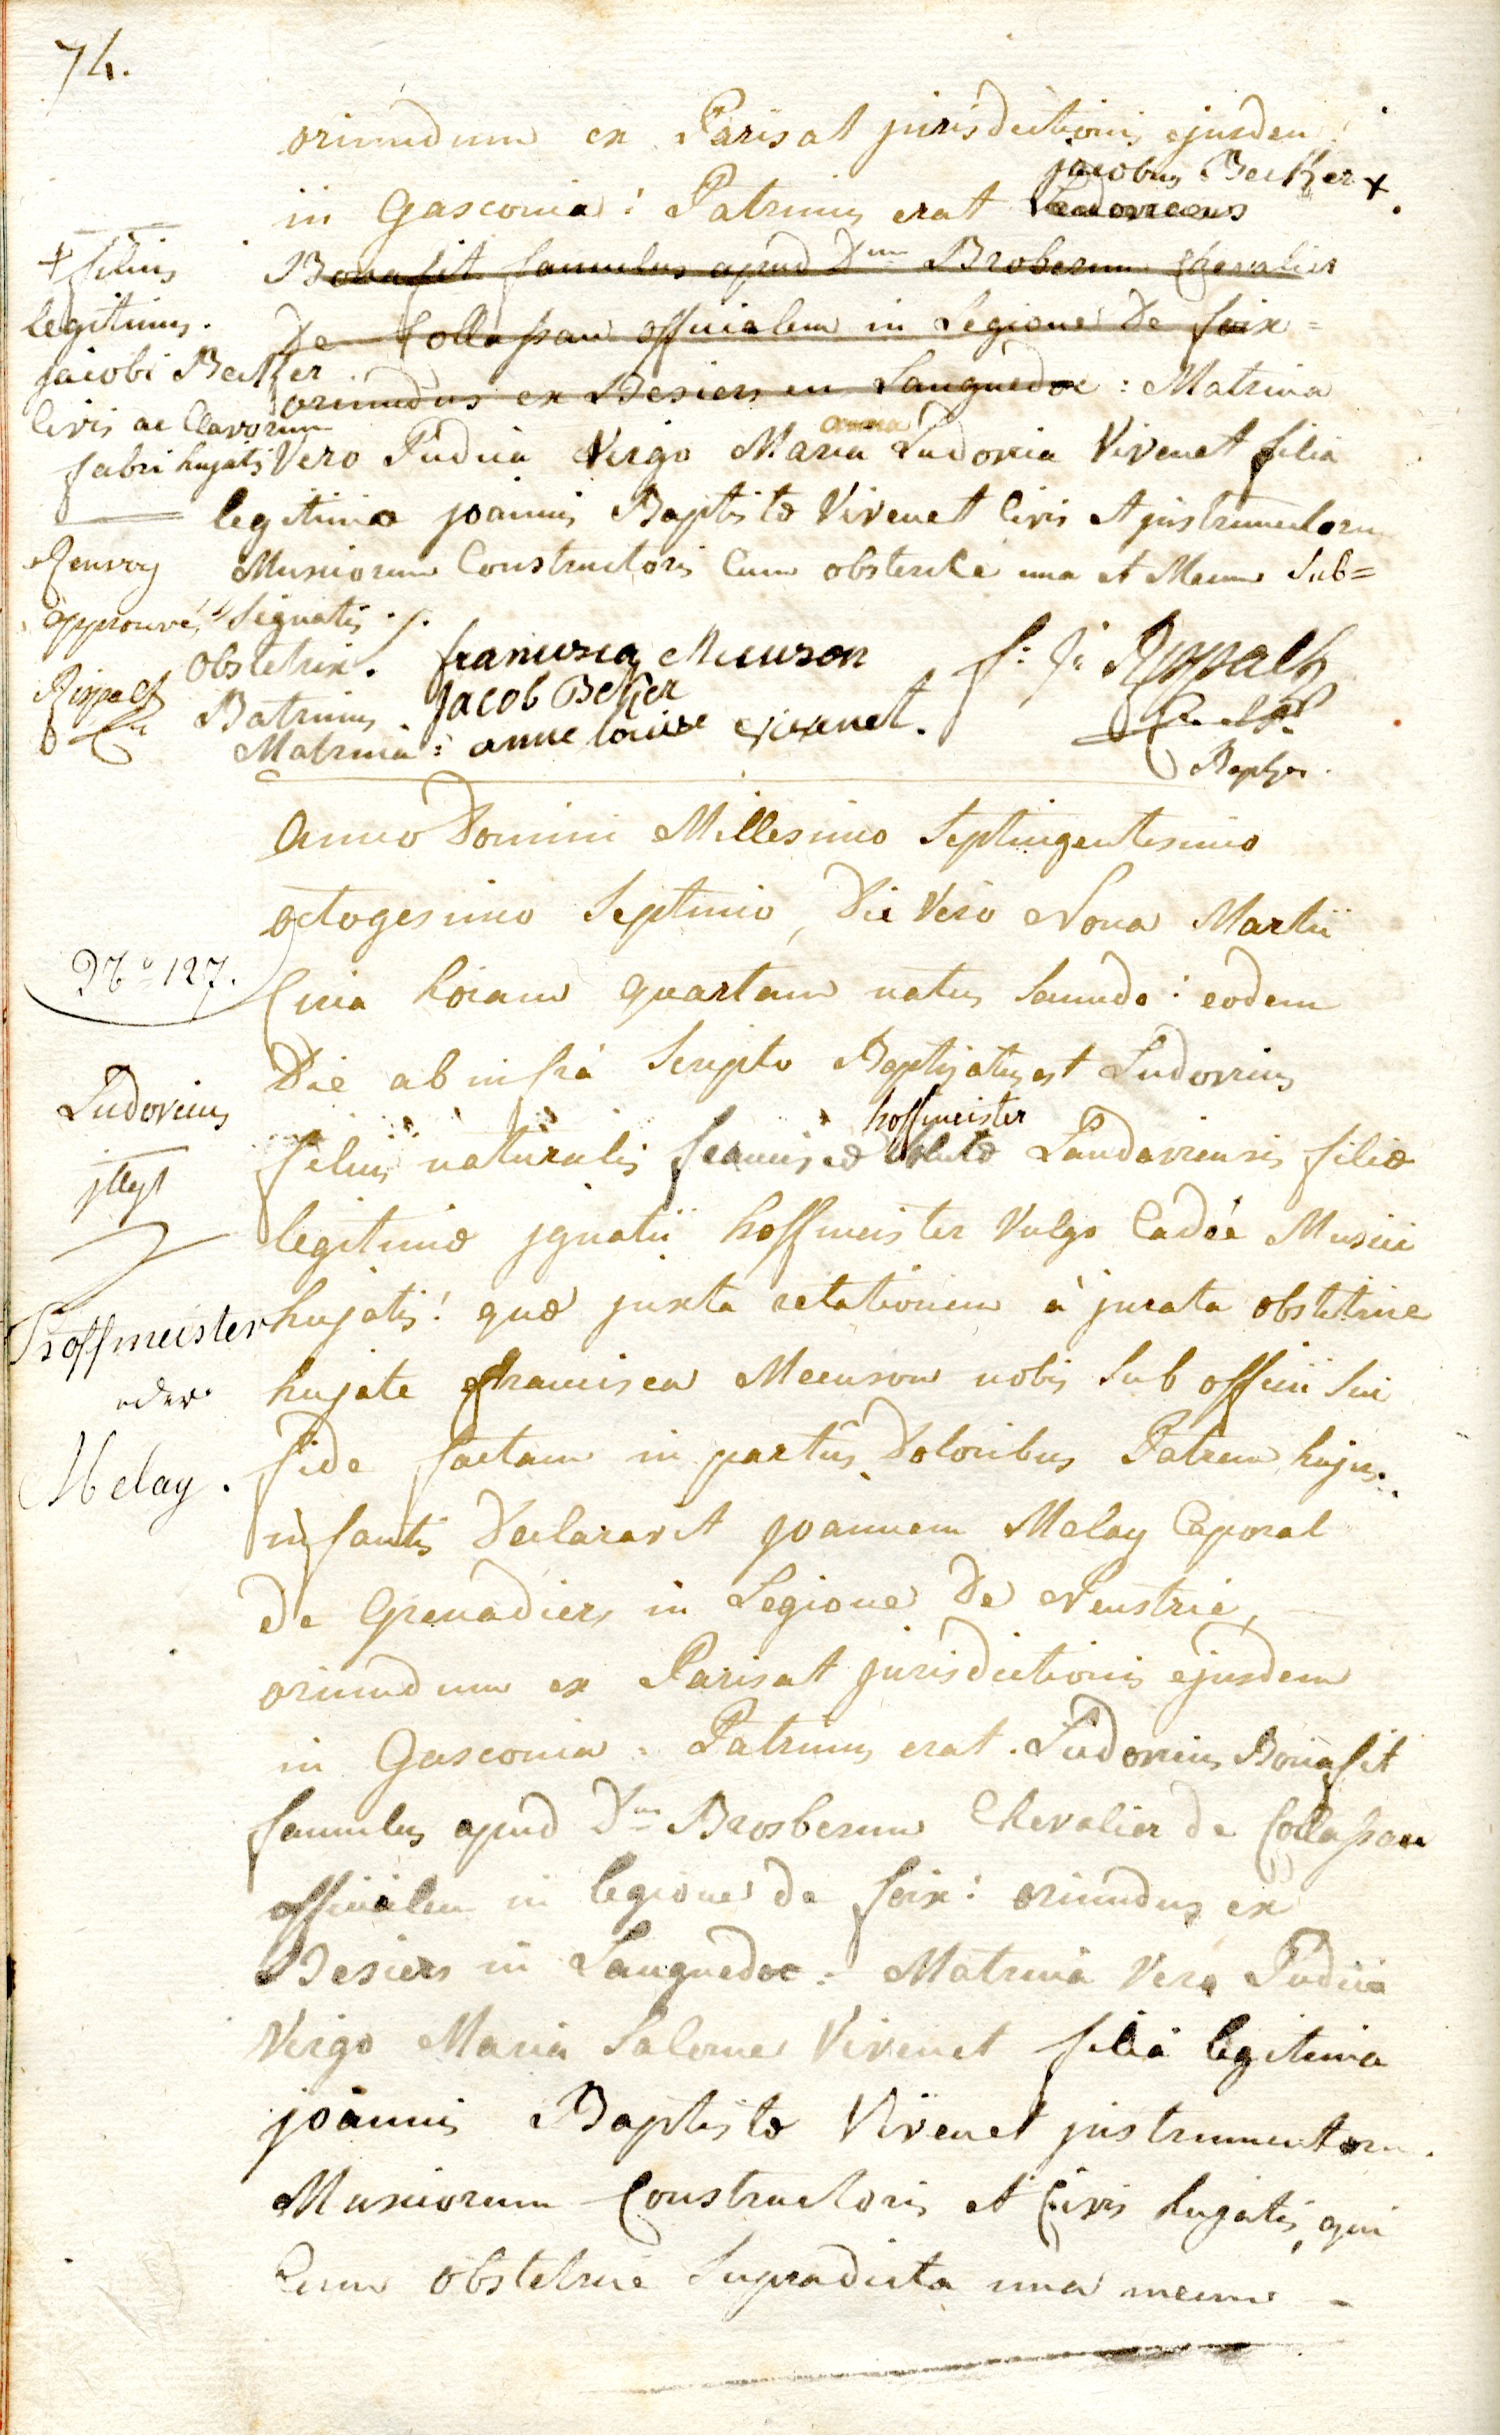 74.
oriundum ex Parisat jurisdictionis ejusdem
jacobus Becker +.
in Gasconia: Patrinus erat Ludovicus
Bonafit famulus apud Dnm Brosberum Chevalier
de Collassau officialem in Legione de foix =
oriundus ex Besiers en Languedoc: Matrina
anna
Vero Pudica Virgo Maria Ludovica Vivenet filia
legitima joannis Baptistæ Vivenet Civis et jnstrumentorum
Musicorum Constructoris Cum obstetrice una et Mecum Sub=
signatis ./.
+ filius
legitimus
jacobi Becker
Civis ac Clavorum
fabri hujatis
Renvoy
approuvé
Rippalt
obstetrix. francisca Meuson
Patrinus. Jacob Beker
Matrina: anne louise vivenet.
f: j: Rippalt
Anno Domini Millesimo Septingentesimo
octogesimo Septimo, Die Vero Nona Martii
Circa horam quartam natus Secundo: eodem
Die ab infrà Scripto Baptizatus est Ludovicus
hoffmeister
filius naturalis franciscæ Landaviensis filiæ
legitimæ jgnatii hoffmeister Vulgo Cadée Musici
hujatis: quæ juxta relationem à jurata obstetrice
hujate francisca Meenson nobis Sub officii Sui
fide factam in partûs Doloribus Patrem hujus
infantis Declaravit joannem Melay Caporal
de Grenadiers in Legione de Neustrie,
oriundum ex Parisat jurisdictionis ejusdem
in Gasconia: Patrinus erat. Ludovicus Bonafit
famulus apud Dnm Brosberum Chevalier de Collassau
officialem in legione de foix: oriundus ex
Besiers in Languedoc: Matrina Vero Pudica
Virgo Maria Salome Vivenet filia legitima
joannis Baptistæ Vivenet jnstrumentorum
Musicorum Constructoris et Civis hujatis, qui
Cum obstetrice Supradicta una mecum -
No 127.
Ludovicus
jlleg
Hoffmeister
oder
Melay.